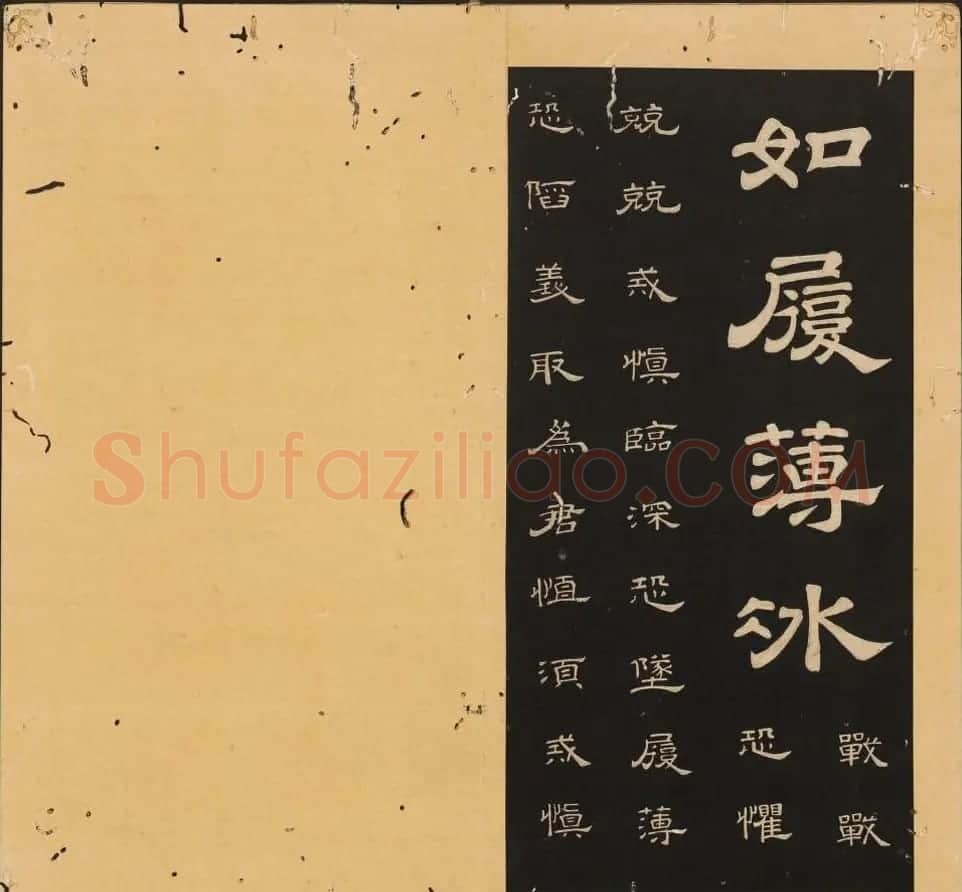 如履薄冰
戰戰
恐懼
兢兢戒慎臨深恐墜履薄
恐陷義取為君恒須戒慎
Shufaziliao.COM